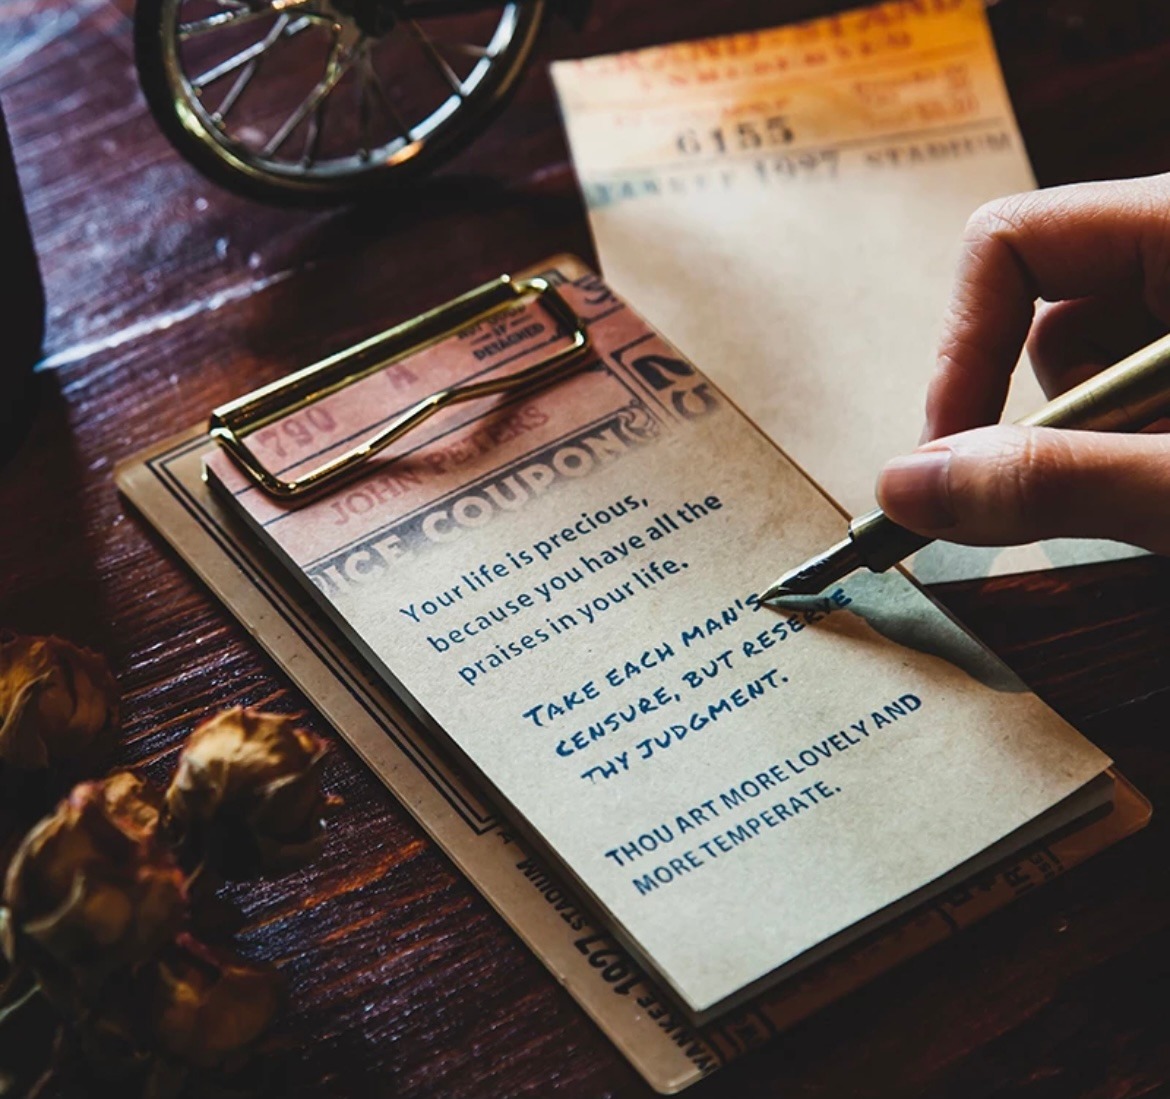 6155
1927 STADIUM
NOT GOOD
IF
DETACHED
A
790
JOHN PETERS
COUPON
Your life is precious,
because you have all the
praises in your life.
TAKE EACH MAN'S
CENSURE, BUT RESERVE
THY JUDGMENT.
THOU ART MORE LOVELY AND
MORE TEMPERATE.
YANKEE 1927 STADIUM